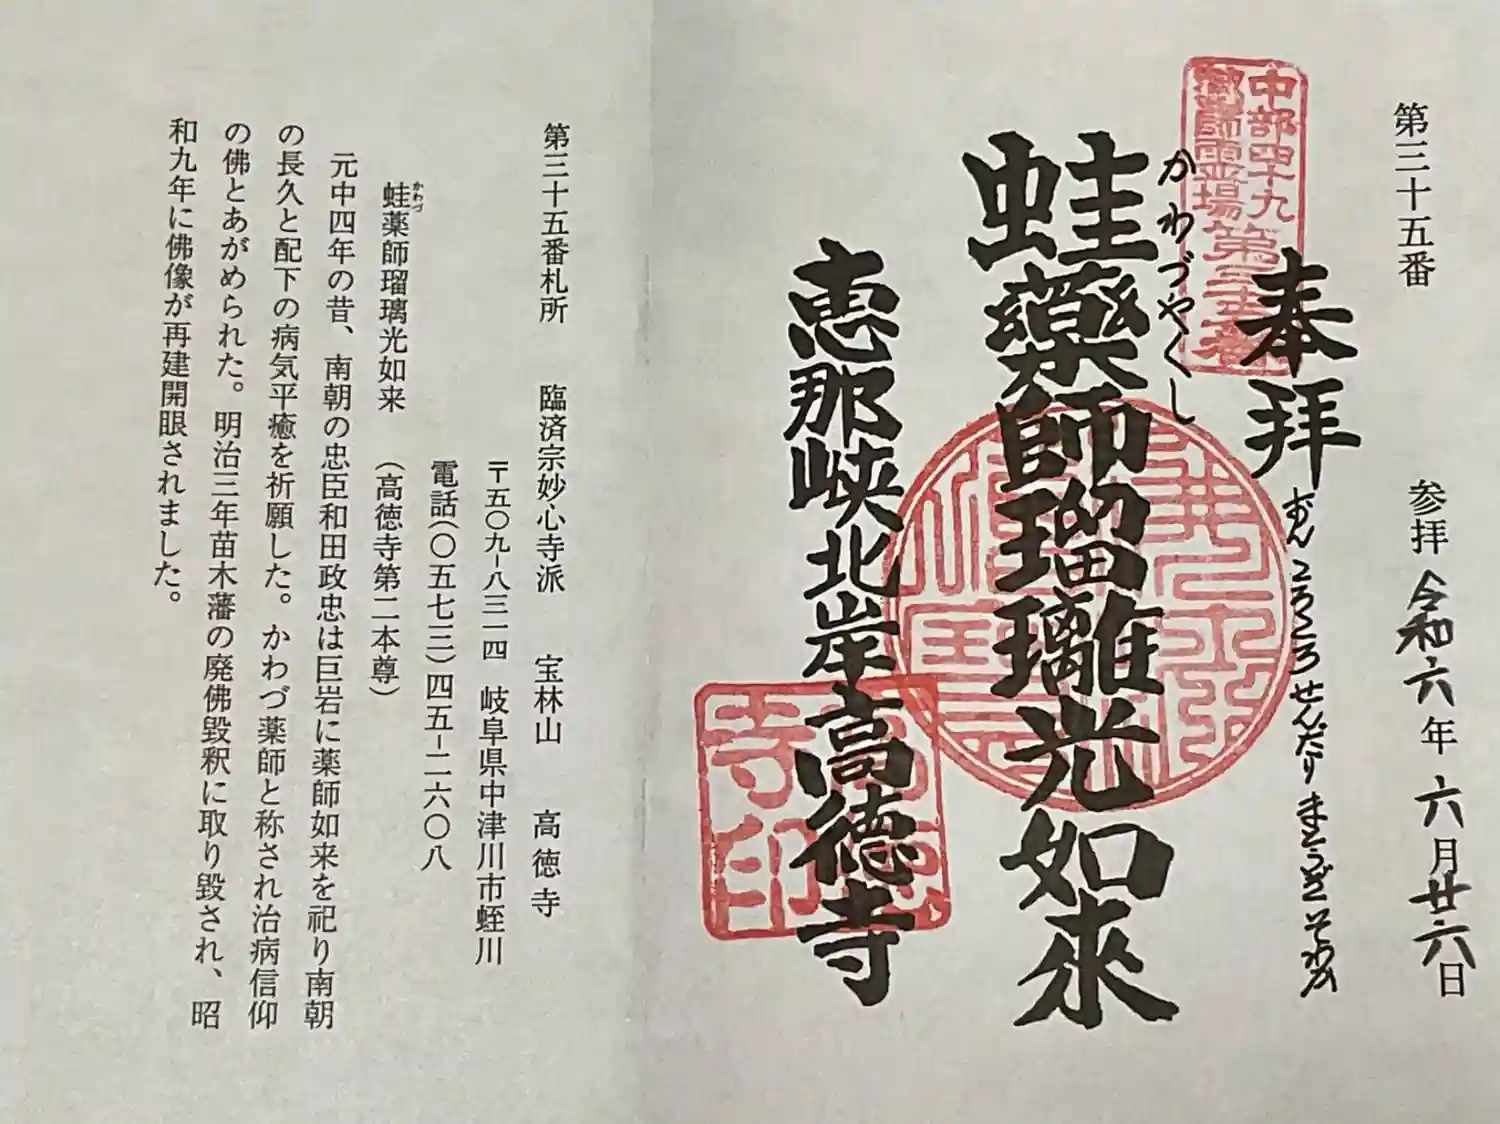 第三十五番
参拝 令和六年 六月廿六日
中部四十九
薬師霊場第三十五番
奉拝
おん ころころ せんだり まとうぎ そわか
かわづやくし
蛙薬師瑠璃光如来
恵那峡北岸高徳寺
第三十五番札所 臨済宗妙心寺派 宝林山 高徳寺
〒五〇九-八三一四 岐阜県中津川市蛭川
電話(〇五七三)四五-二六〇八
蛙薬師瑠璃光如来 (高徳寺第二本尊)
かわづ
元中四年の昔、南朝の忠臣和田政忠は巨岩に薬師如来を祀り南朝
の長久と配下の病気平癒を祈願した。かわづ薬師と称され治病信仰
の佛とあがめられた。明治三年苗木藩の廃佛毀釈に取り毀され、昭
和九年に佛像が再建開眼されました。